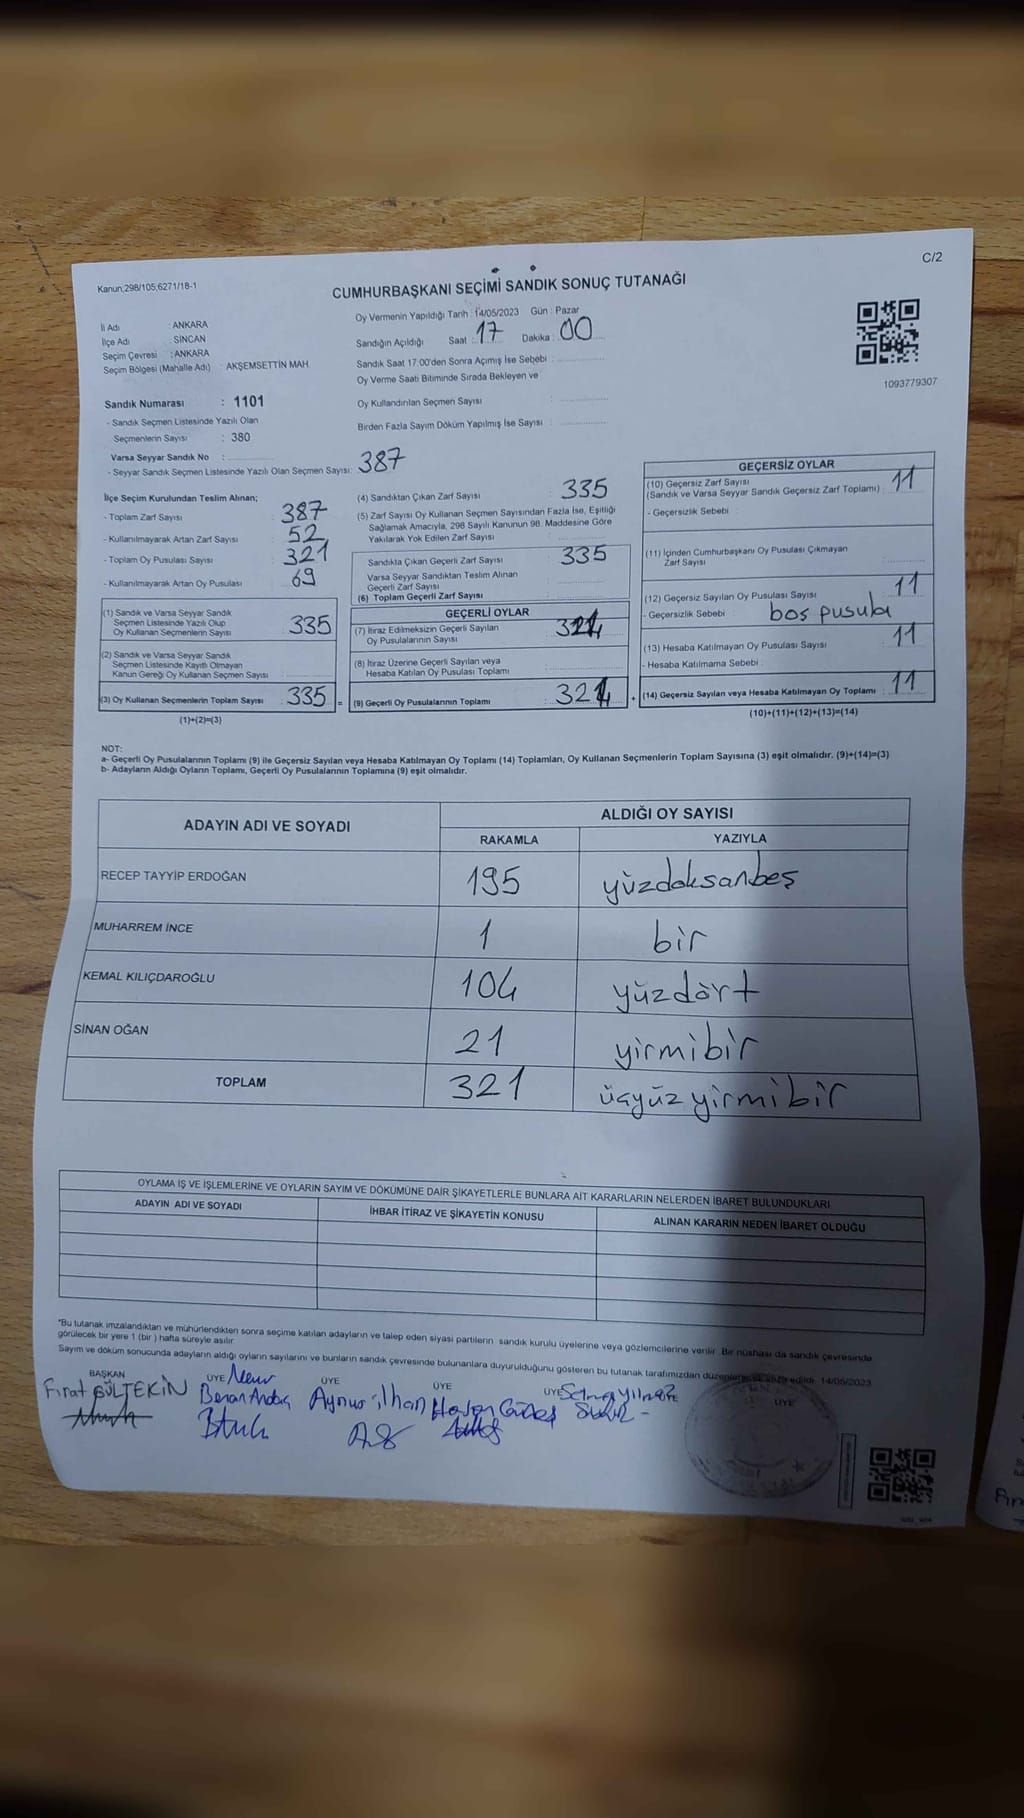 C/2
Kanun;298/105;6271/18-1
CUMHURBAŞKANI SEÇİMİ SANDIK SONUÇ TUTANAĞI
İl Adı : ANKARA
İlçe Adı : SİNCAN
Seçim Çevresi : ANKARA
Seçim Bölgesi (Mahalle Adı) : AKŞEMSETTİN MAH
Oy Vermenin Yapıldığı Tarih : 14/05/2023 Gün : Pazar
Sandığın Açıldığı Saat : 17 Dakika : 00
Sandık Saat 17:00'den Sonra Açımış İse Sebebi :
Oy Verme Saati Bitiminde Sırada Bekleyen ve
Oy Kullandırılan Seçmen Sayısı :
Birden Fazla Sayım Döküm Yapılmış İse Sayısı :
1093779307
Sandık Numarası : 1101
- Sandık Seçmen Listesinde Yazılı Olan
Seçmenlerin Sayısı : 380
Varsa Seyyar Sandık No :
- Seyyar Sandık Seçmen Listesinde Yazılı Olan Seçmen Sayısı: 387
İlçe Seçim Kurulundan Teslim Alınan;
- Toplam Zarf Sayısı : 387
- Kullanılmayarak Artan Zarf Sayısı : 52
- Toplam Oy Pusulası Sayısı : 321
- Kullanılmayarak Artan Oy Pusulası : 69
(1) Sandık ve Varsa Seyyar Sandık
Seçmen Listesinde Yazılı Olup
Oy Kullanan Seçmenlerin Sayısı : 335
(2) Sandık ve Varsa Seyyar Sandık
Seçmen Listesinde Kayıtlı Olmayan
Kanun Gereği Oy Kullanan Seçmen Sayısı :
(3) Oy Kullanan Seçmenlerin Toplam Sayısı : 335
(1)+(2)=(3)
(4) Sandıktan Çıkan Zarf Sayısı : 335
(5) Zarf Sayısı Oy Kullanan Seçmen Sayısından Fazla İse, Eşitliği
Sağlamak Amacıyla, 298 Sayılı Kanunun 98. Maddesine Göre
Yakılarak Yok Edilen Zarf Sayısı :
Sandıkta Çıkan Geçerli Zarf Sayısı : 335
Varsa Seyyar Sandıktan Teslim Alınan
Geçerli Zarf Sayısı :
(6) Toplam Geçerli Zarf Sayısı :
GEÇERLİ OYLAR
(7) İtiraz Edilmeksizin Geçerli Sayılan
Oy Pusulalarının Sayısı :
(8) İtiraz Üzerine Geçerli Sayılan veya
Hesaba Katılan Oy Pusulası Toplamı :
= (9) Geçerli Oy Pusulalarının Toplamı :
GEÇERSİZ OYLAR
(10) Geçersiz Zarf Sayısı
(Sandık ve Varsa Seyyar Sandık Geçersiz Zarf Toplamı) : 11
- Geçersizlik Sebebi :
(11) İçinden Cumhurbaşkanı Oy Pusulası Çıkmayan
Zarf Sayısı :
(12) Geçersiz Sayılan Oy Pusulası Sayısı : 11
- Geçersizlik Sebebi : boş pusula
(13) Hesaba Katılmayan Oy Pusulası Sayısı : 11
- Hesaba Katılmama Sebebi :
+ (14) Geçersiz Sayılan veya Hesaba Katılmayan Oy Toplamı : 11
(10)+(11)+(12)+(13)=(14)
NOT:
a- Geçerli Oy Pusulalarının Toplamı (9) ile Geçersiz Sayılan veya Hesaba Katılmayan Oy Toplamı (14) Toplamları, Oy Kullanan Seçmenlerin Toplam Sayısına (3) eşit olmalıdır. (9)+(14)=(3)
b- Adayların Aldığı Oyların Toplamı, Geçerli Oy Pusulalarının Toplamına (9) eşit olmalıdır.
ADAYIN ADI VE SOYADI ALDIĞI OY SAYISI
RAKAMLA YAZIYLA
RECEP TAYYİP ERDOĞAN 195 yüzdoksanbeş
MUHARREM İNCE 1 bir
KEMAL KILIÇDAROĞLU 104 yüzdört
SİNAN OĞAN 21 yirmibir
TOPLAM 321 üçyüzyirmibir
OYLAMA İŞ VE İŞLEMLERİNE VE OYLARIN SAYIM VE DÖKÜMÜNE DAİR ŞİKAYETLERLE BUNLARA AİT KARARLARIN NELERDEN İBARET BULUNDUKLARI
ADAYIN ADI VE SOYADI İHBAR İTİRAZ VE ŞİKAYETİN KONUSU ALINAN KARARIN NEDEN İBARET OLDUĞU
*Bu tutanak imzalandıktan ve mühürlendikten sonra seçime katılan adayların ve talep eden siyasi partilerin sandık kurulu üyelerine veya gözlemcilerine verilir. Bir nüshası da sandık çevresinde
görülecek bir yere 1 (bir ) hafta süreyle asılır.
Sayım ve döküm sonucunda adayların aldığı oyların sayılarını ve bunların sandık çevresinde bulunanlara duyurulduğunu gösteren bu tutanak tarafımızdan edildi. 14/05/2023
BAŞKAN ÜYE ÜYE ÜYE ÜYE ÜYE
Fırat GÜLTEKİN Aynur ilhan